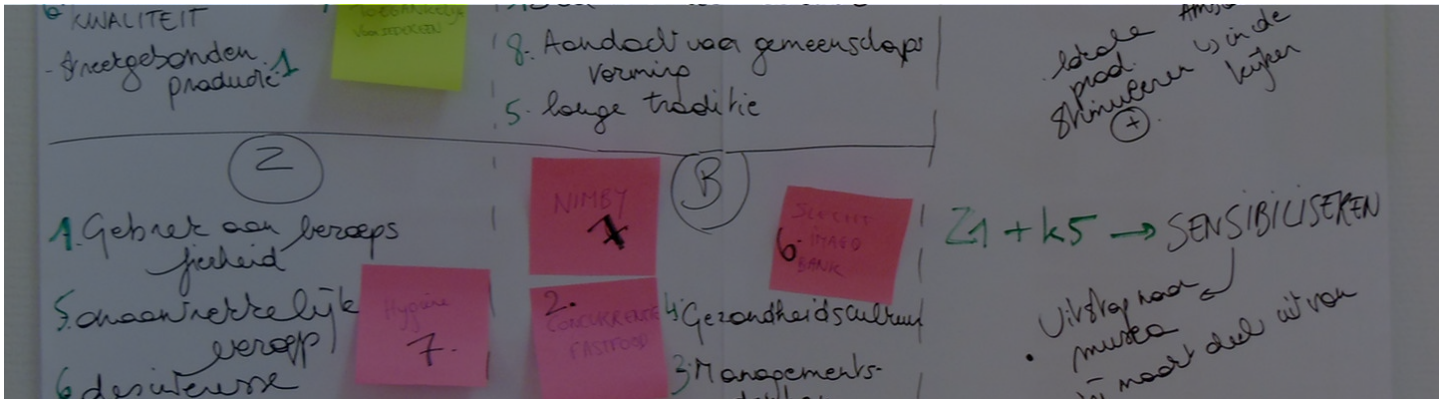 KWALITEIT
- Streekgebonden
productie 1
8. Aandacht voor gemeenschaps
vorming
5. lange traditie
lokale
prod.
stimuleren
↳ in de
kijker
+
Z
1. Gebrek aan beroeps
fierheid
5. onaantrekkelijk
beroep
6 desinteresse
Hygiëne
7.
B
NIMBY
1
SLECHT
6. IMAGO
BANK
2.
CONCURRENTIE
FASTFOOD
4 Gezondheidscultuur
3. Managements-
Z1 + k5 → SENSIBILISEREN
Uitstap naar
• musea
maakt deel uit van